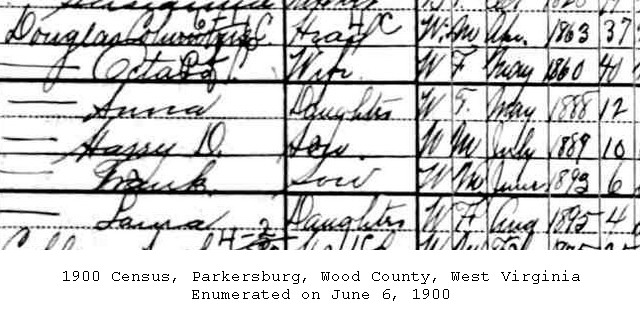 Douglas Columbus C. Head W M Apr. 1863 37
— Octa Wife W F May 1860 40
— Anna Daughter W F. May 1888 12
— Harry D. Son W M July 1889 10
— Frank Son W M June 1893 6
— Laura Daughter W F Aug 1895 4
1900 Census, Parkersburg, Wood County, West Virginia
Enumerated on June 6, 1900